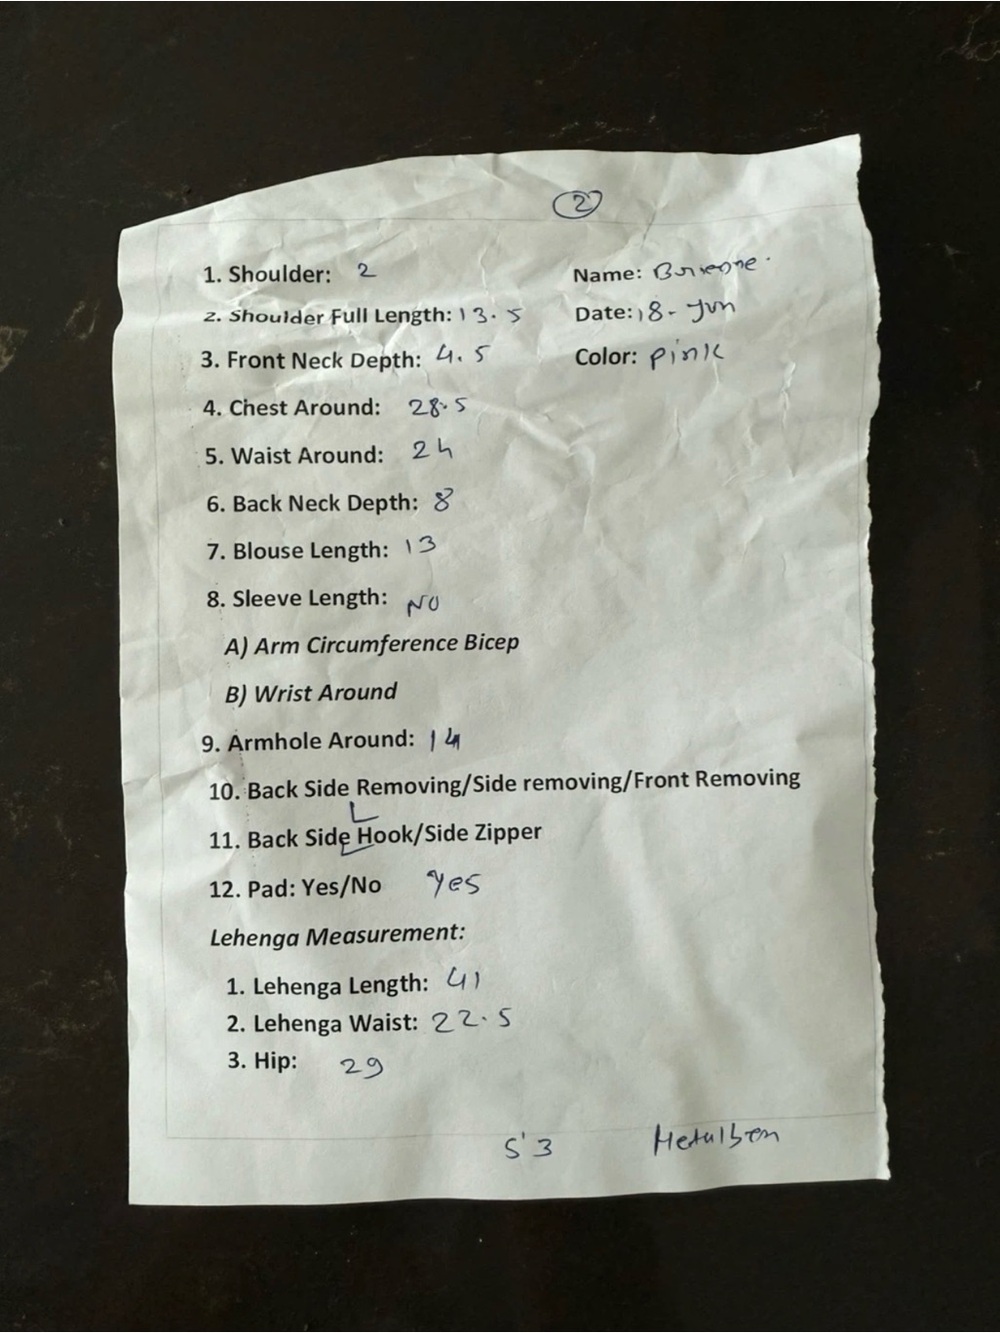 2
1. Shoulder: 2
Name:
2. Shoulder Full Length: 13.5
Date: 18-Jun
3. Front Neck Depth: 4.5
Color: pink
4. Chest Around: 28.5
5. Waist Around: 24
6. Back Neck Depth: 8
7. Blouse Length: 13
8. Sleeve Length: NO
A) Arm Circumference Bicep
B) Wrist Around
9. Armhole Around: 14
10. Back Side Removing/Side removing/Front Removing
11. Back Side Hook/Side Zipper
12. Pad: Yes/No Yes
Lehenga Measurement:
1. Lehenga Length: 41
2. Lehenga Waist: 22.5
3. Hip: 29
5'3 Hetalben